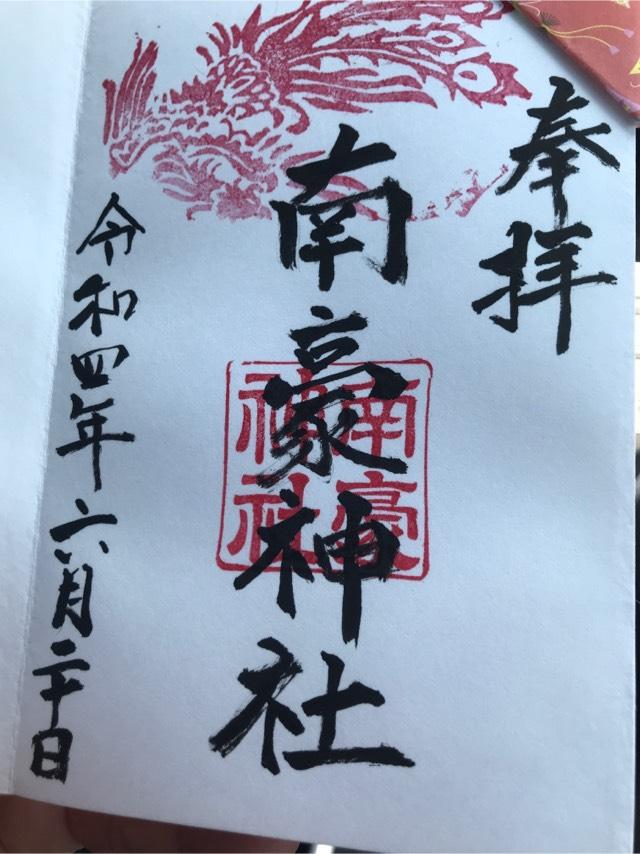 奉拝
南豪神社
南豪
神社
令和四年六月二十日